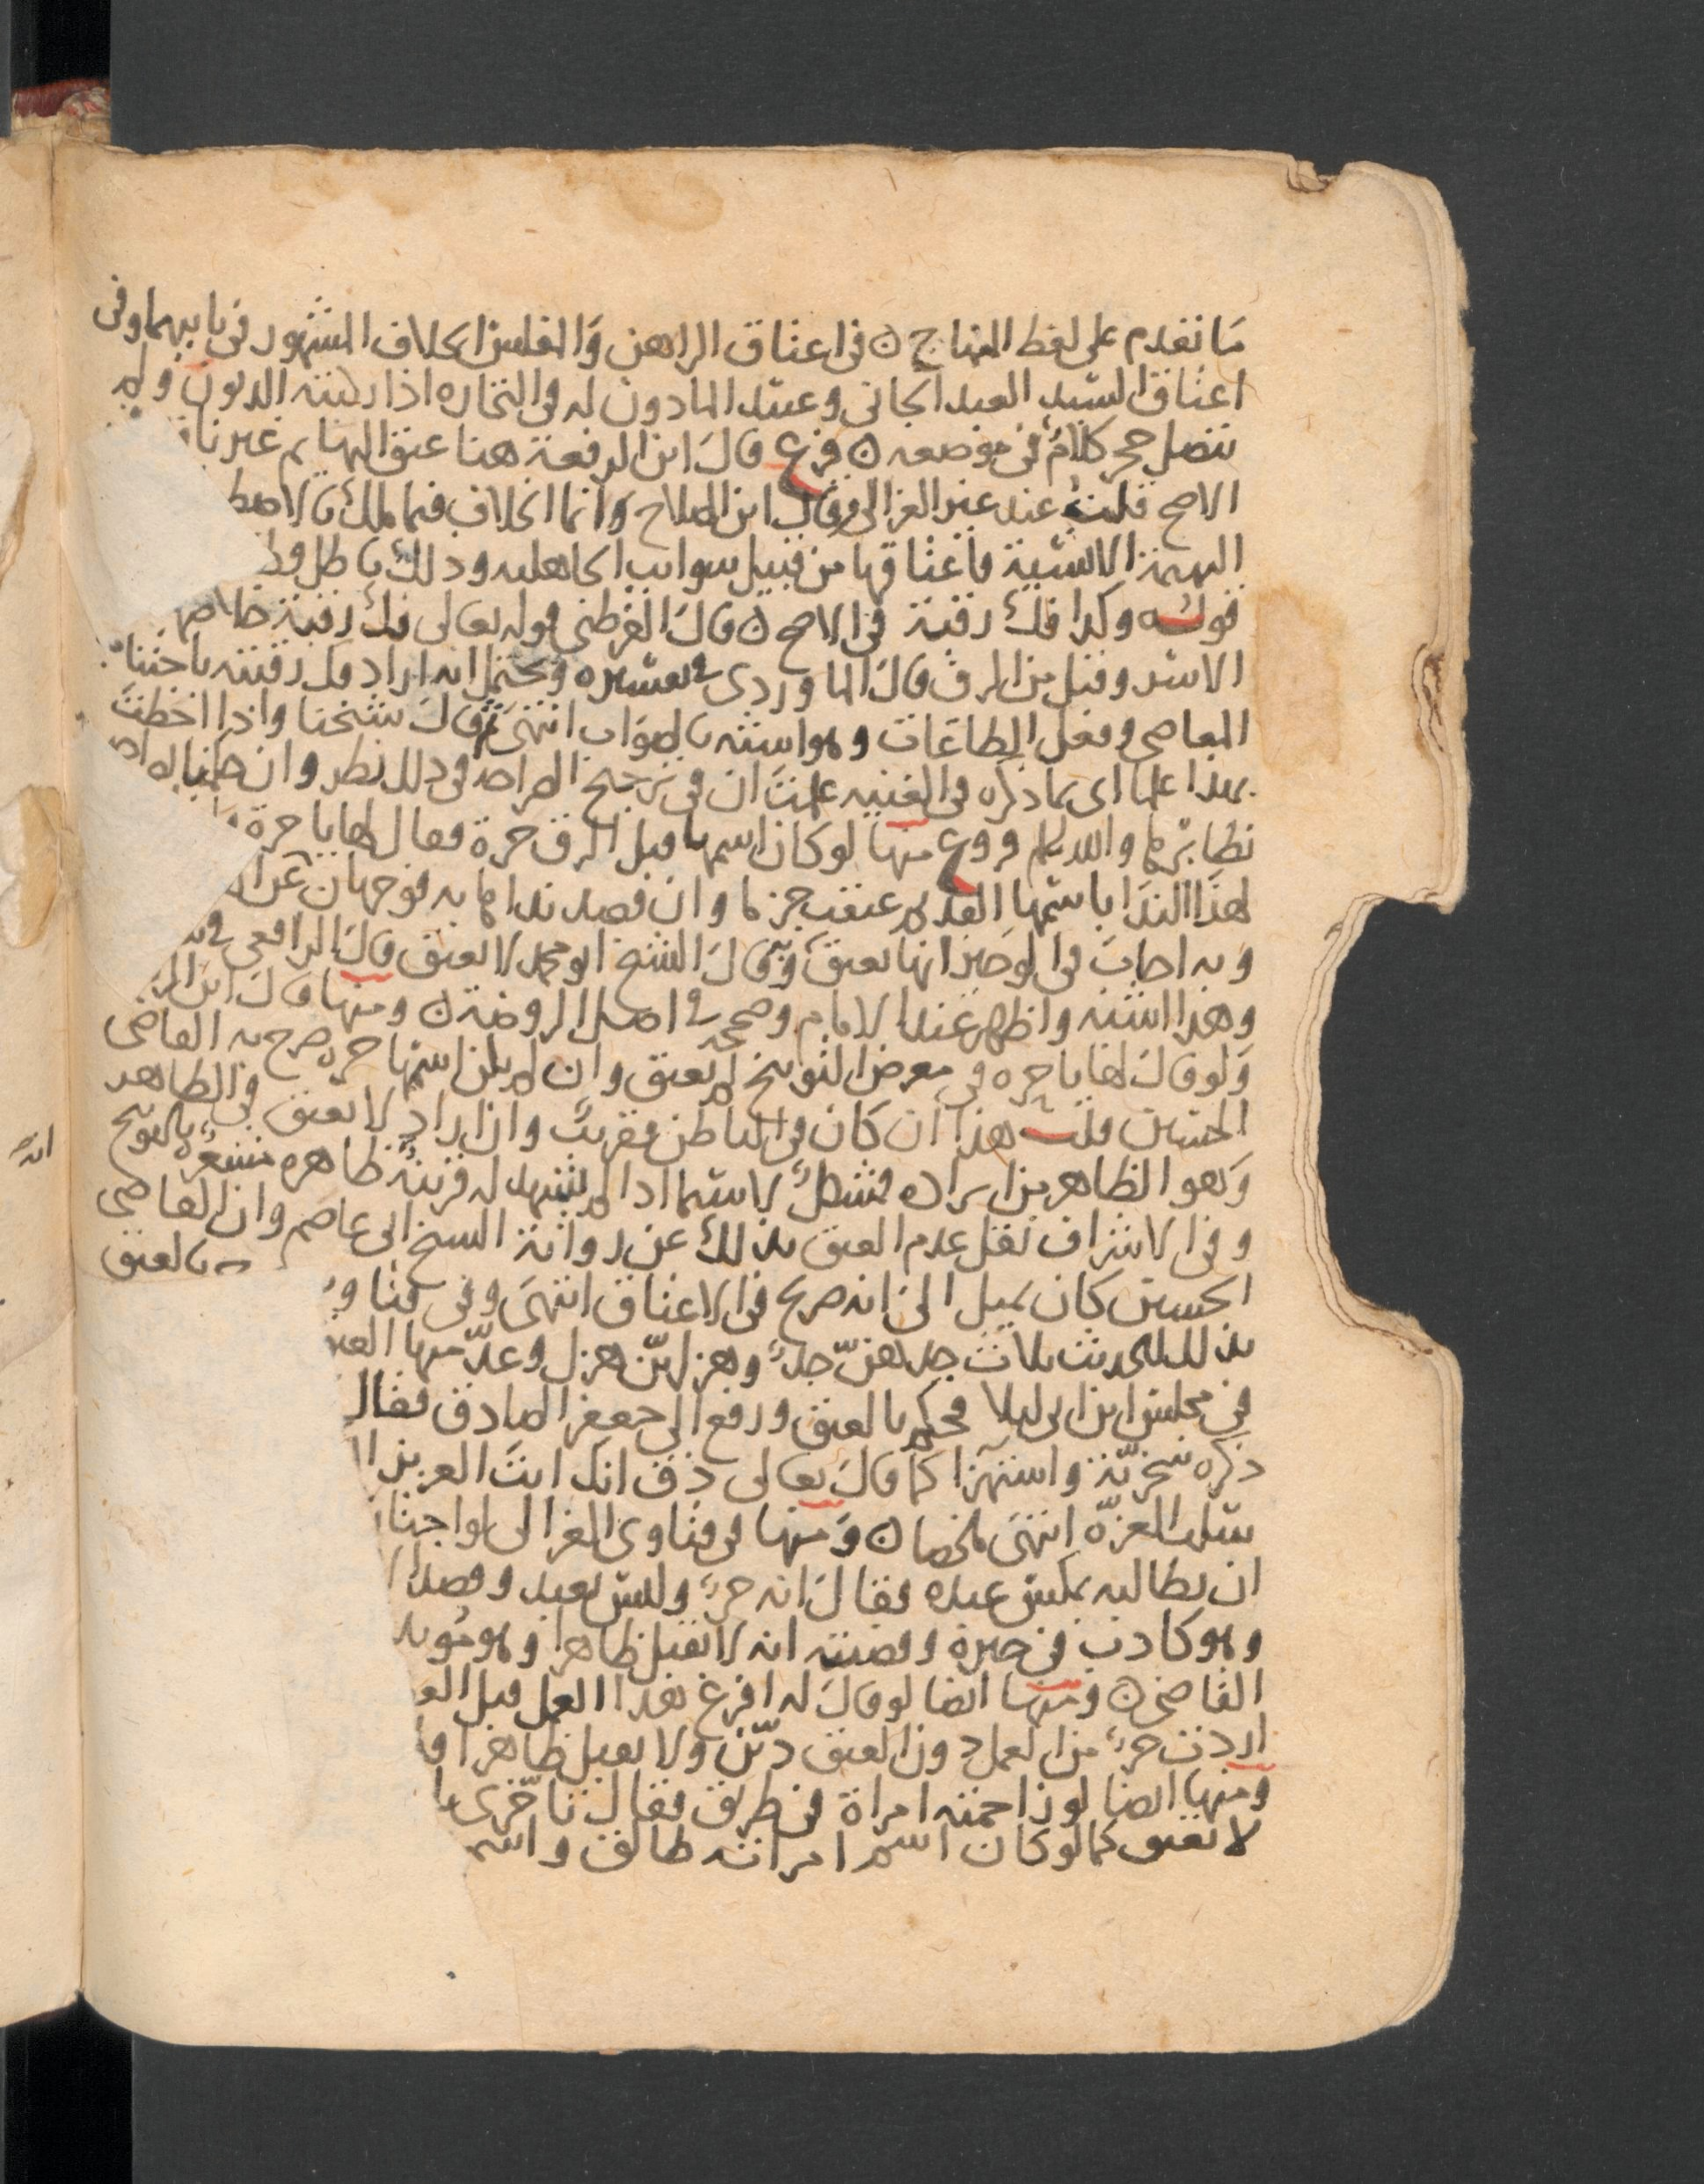 ما تقدم على لفظ المنهاج ن في اعتاق الراهن والمفلس الخلاف المشهور في بابيهما وفي
اعتاق السيد العبد الجاني وعبده المادون له في التجاره اذا ركبته الديون ولم
ينفصل حجر كلام في موضعه ن فرع قال ابن الرفعة هنا عتق البهايم غير نا
الاصح قلت عند عند الغزالي وقال ابن الصلاح وانما الخلاف فيما يملك بالاصط
البهيمة الانسية فاعتاقها من قبيل سوايب الجاهليه وذلك باطل وط
قوله وكذا فك رقبة في الاصح ن قال القرطبي قوله تعالى فك رقبة خلاصها
الاسر وقيل من الرق قال الماوردي في تفسيره ويحتمل انه اراد فك رقبته باجتنا
المعاصي وفعل الطاعات وهو اشبه بالصواب انتهى ثم قال شيخنا واذا احطت
بهذا علما اي بما ذكره في الغنيه علمت ان في ترجيح الصراحه في ذلك نظر وان
نظايرها والله اعلم فروع منها لو كان اسمها قبل الرق حرة فقال لها يا حرة
لهذا الندا باسمها القديم عتقت جزما وان قصد نداها به فوجهان عن
وبه اجاب في الوجيز انها تعتق وقال الشيخ ابو محمد لا تعتق قال الرافعي في
وهذا اشبه واظهر عند الامام وصححه في اصل الروضة ن ومنها قال ابن الر
ولو قال لها يا حره في معرض التوبيخ لم تعتق وان لم يكن اسمها حره صرح به القاضي
الحسين قلت هذا ان كان في الباطن فقريب وان اراد لا تعتق في الظاهر
وهو الظاهر من ايراده فمشكل لا سيما اذا لم يشهد له قرينة ظاهره مشعره بالتوبيخ
وفي الاشراف نقل عدم العتق بذلك عن رواية الشيخ ابي عاصم وان القاضي
الحسين كان يميل الى انه صريح في الاعتاق انتهى وفي فتاو بالعتق
بذلك للحديث ثلاث جدهن جد وهزلهن هزل وعد منها العتـ
في مجلس ابن ابي ليلا فحكم بالعتق ورفع الى جعفر الصادق فقال
ذكره سخرية واستهزا كما قال تعالى ذق انك انت العزيز ا
سلب العزة انتهى ملخصا ن ومنها في فتاوى الغزالي لو اجتا
ان يطالبه بمكس عبده فقال انه حر وليس بعبد وقصد ا
وهو كاذب في خبره وقضيته انه لا يقبل ظاهرا وهو مويد
القاضي ن ومنها ايضا لو قال له افرغ هذا العمل قبل العـ
اردت حر من العمل دون العتق دين ولا يقبل ظاهرا وا
ومنها ايضا لو زاحمته امراة في طريق فقال تاخري يا
لا تعتق كما لو كان اسم امراته طالق واسم